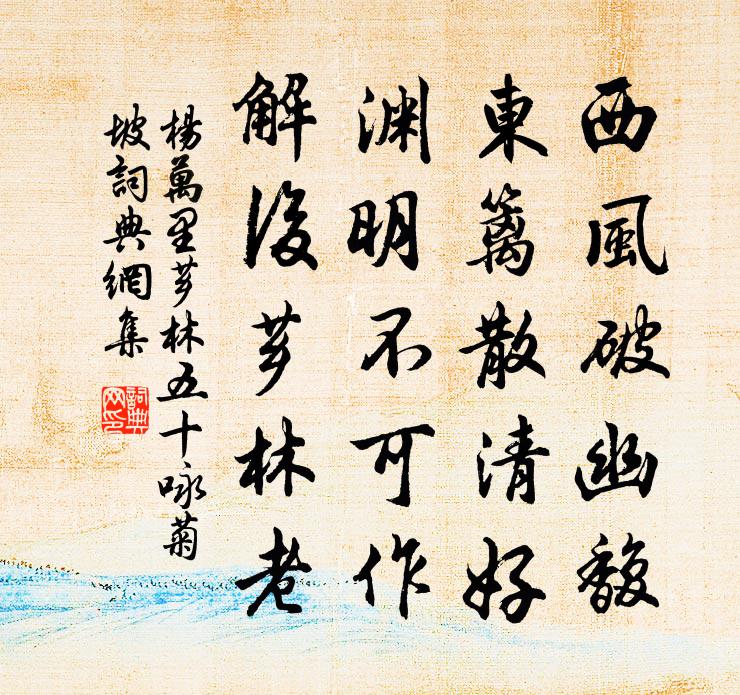 西風破幽馥
東籬散清好
渊明不可作
解後芗林老
楊萬里芗林五十咏菊
坡詞典網集
詞典
网印